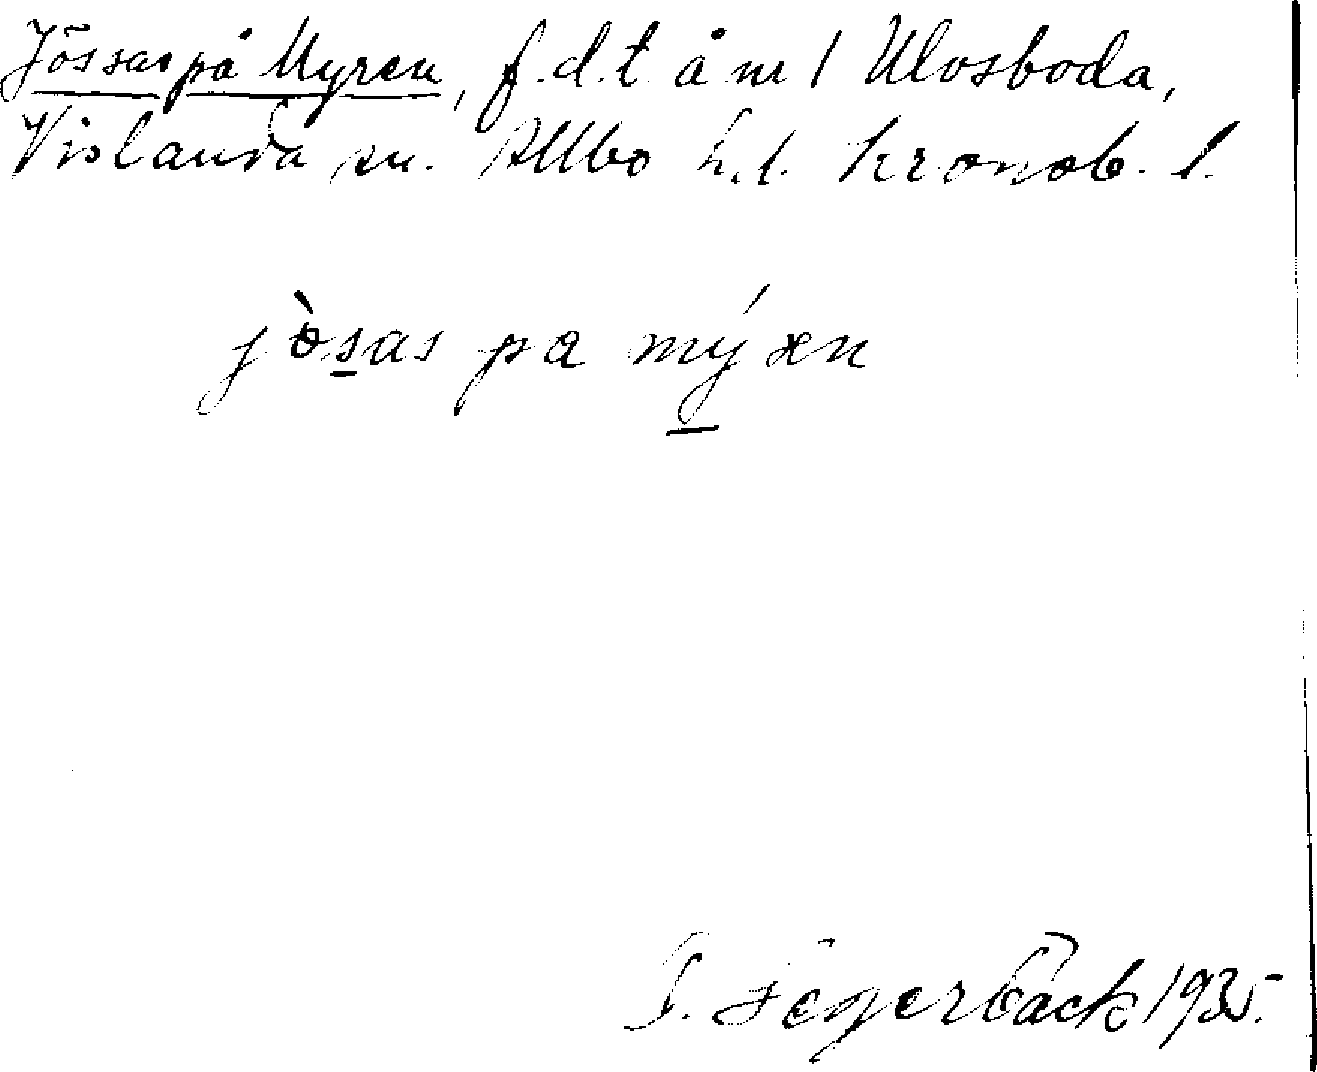 Jössas på Myren, f.d.t. å nr 1 Ulvsboda,
Vislanda sn. Allbo h.d. Kronob. l.
jòsas pa mýren
B. Segerbäck 1935.